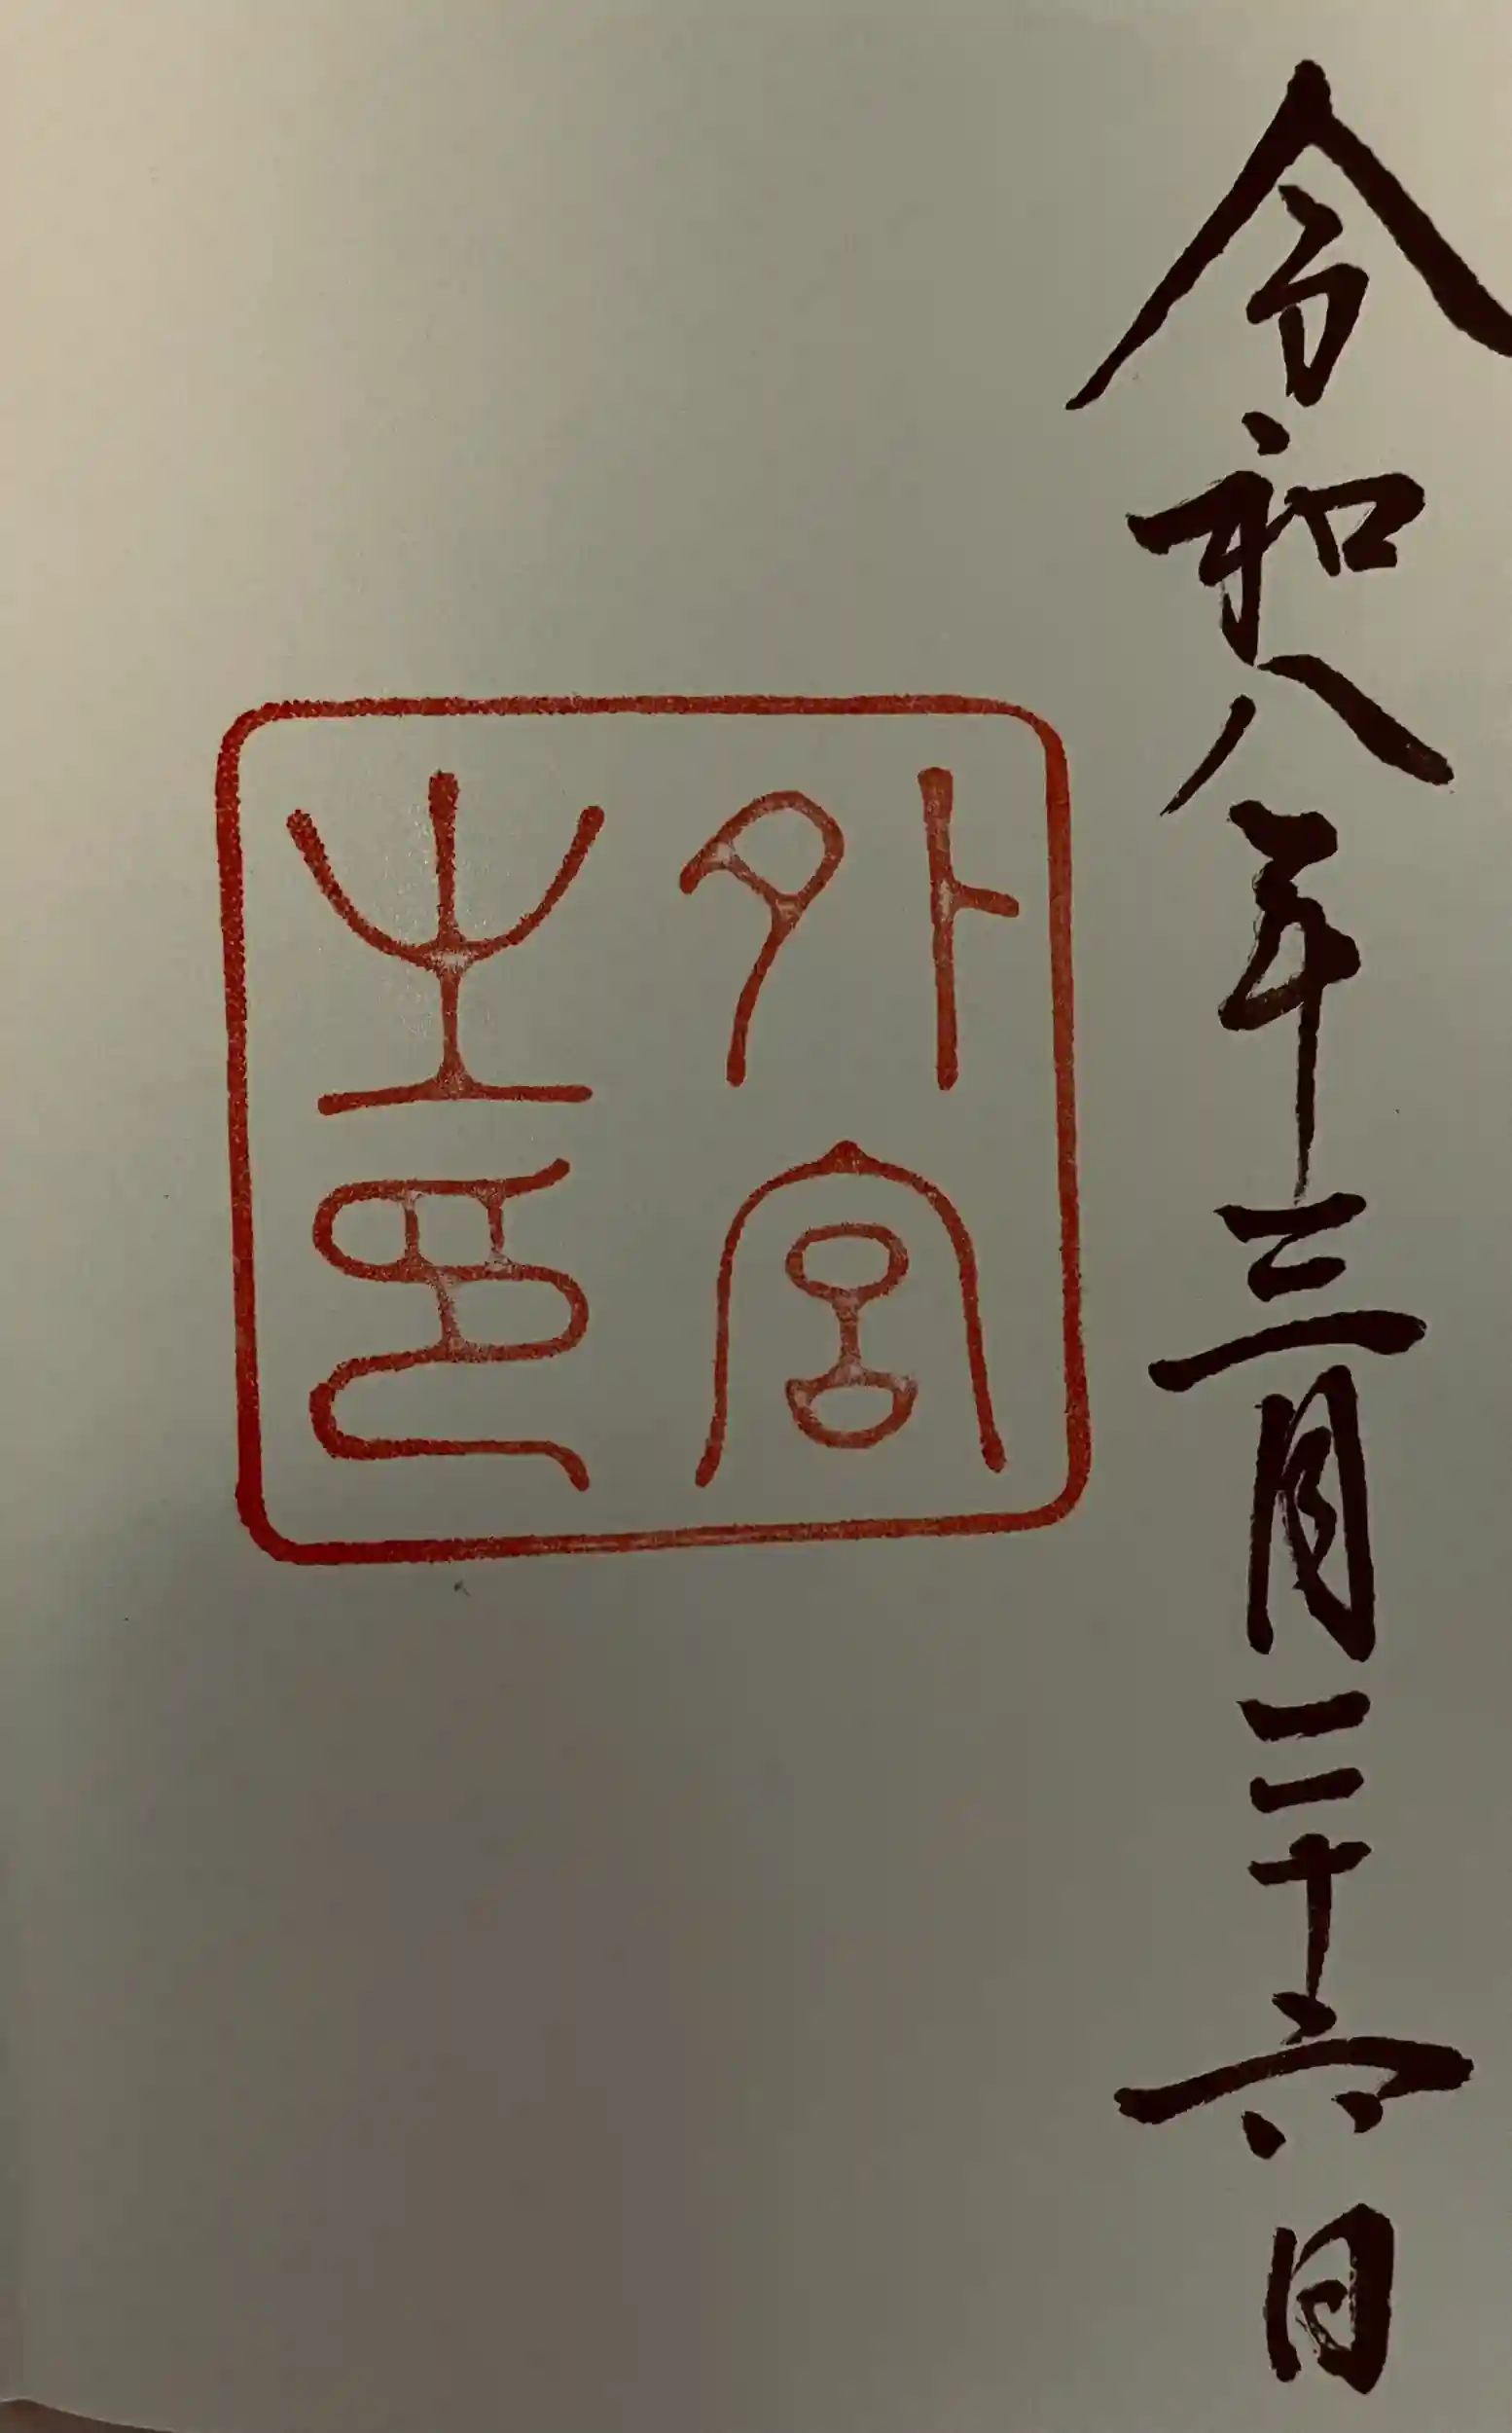 令和八年三月二十六日
外宮
之印